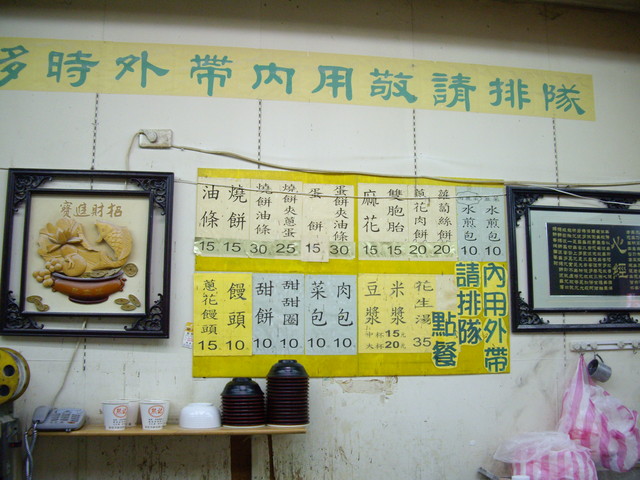 多時外帶內用敬請排隊
招財進寶
油條 15
燒餅 15
燒餅油條 30
燒餅夾蔥蛋 25
蛋餅 15
蛋餅夾油條 30
麻花 15
雙胞胎 15
蔥花肉餅 20
蘿蔔絲餅 20
水煎包 10
水煎包 10
蔥花饅頭 15
饅頭 10
甜餅 10
甜甜圈 10
菜包 10
肉包 10
豆漿
米漿
中杯15元
大杯20元
花生湯 35
內用外帶
請排隊
點餐
心經